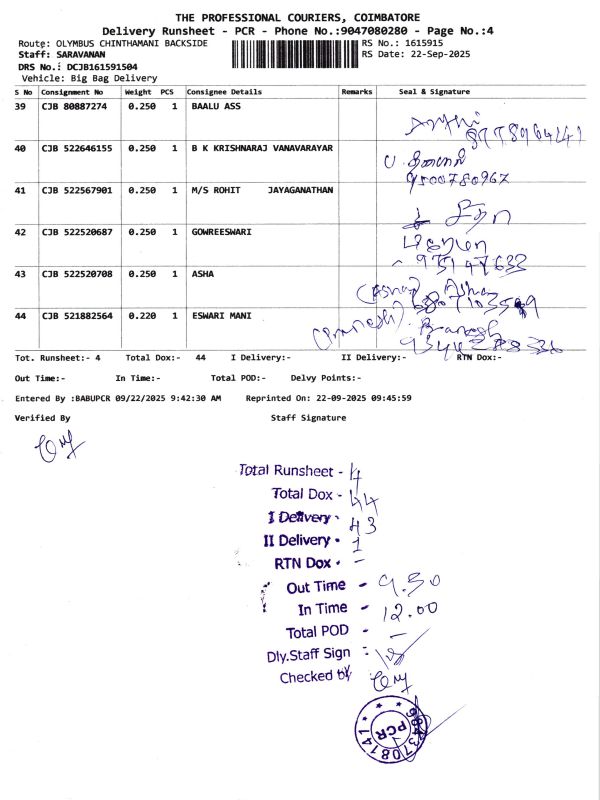 THE PROFESSIONAL COURIERS, COIMBATORE
Delivery Runsheet - PCR - Phone No.:9047080280 - Page No.:4
Route: OLYMBUS CHINTHAMANI BACKSIDE RS No.: 1615915
Staff: SARAVANAN RS Date: 22-Sep-2025
DRS No.: DCJB161591504
Vehicle: Big Bag Delivery
S No Consignment No Weight PCS Consignee Details Remarks Seal & Signature
39 CJB 80887274 0.250 1 BAALU ASS
40 CJB 522646155 0.250 1 B K KRISHNARAJ VANAVARAYAR
9500780967
41 CJB 522567901 0.250 1 M/S ROHIT JAYAGANATHAN
42 CJB 522520687 0.250 1 GOWREESWARI
43 CJB 522520708 0.250 1 ASHA
(Asha) Asha
44 CJB 521882564 0.220 1 ESWARI MANI
Tot. Runsheet:- 4 Total Dox:- 44 I Delivery:- II Delivery:- RTN Dox:-
Out Time:- In Time:- Total POD:- Delvy Points:-
Entered By :BABUPCR 09/22/2025 9:42:30 AM Reprinted On: 22-09-2025 09:45:59
Verified By Staff Signature
Total Runsheet - 4
Total Dox - 44
I Delivery - 43
II Delivery - 1
RTN Dox - -
Out Time - 9.50
In Time - 12.00
Total POD - -
Dly.Staff Sign :
Checked by
PCR